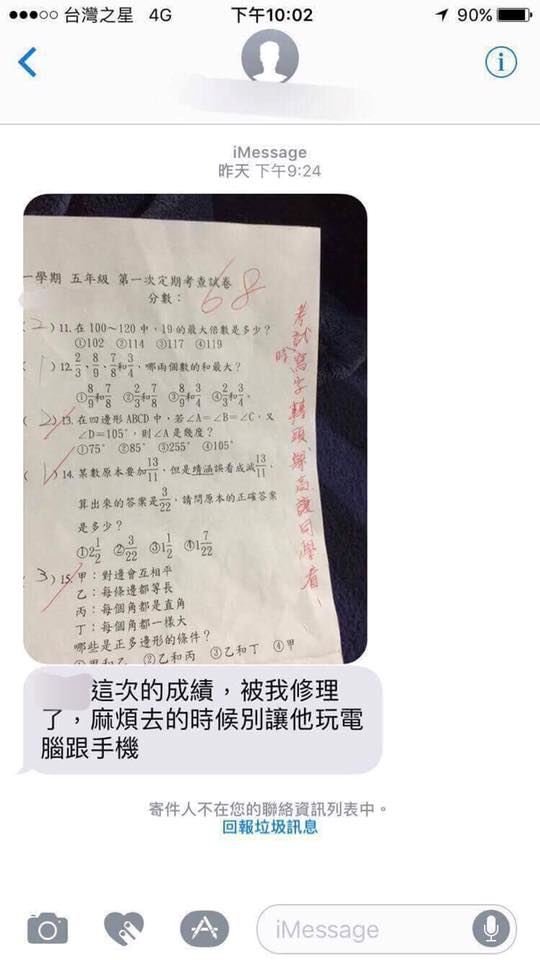 台灣之星 4G 下午10:02 90%
iMessage
昨天 下午9:24
一學期 五年級 第一次定期考查試卷
分數： 68
(2) 11. 在 100~120 中，19 的最大倍數是多少？
①102 ②114 ③117 ④119
1) 12. 2/3、8/9、7/8和3/4，哪兩個數的和最大？
①8/9和7/8 ②2/3和7/8 ③8/9和3/4 ④2/3和3/4。
(2) 13. 在四邊形 ABCD 中，若∠A=∠B=∠C，又
∠D=105°，則∠A 是幾度？
①75° ②85° ③255° ④105°
(1) 14. 某數原本要加13/11，但是靖涵誤看成減13/11，
算出來的答案是3/22，請問原本的正確答案
是多少？
①2 1/2 ②3/22 ③1 1/2 ④1 7/22
3) 15. 甲：對邊會互相平
乙：每條邊都等長
丙：每個角都是直角
丁：每個角都一樣大
哪些是正多邊形的條件？
①甲和乙 ②乙和丙 ③乙和丁 ④甲
考試時寫字轉頭舉高讓同學看、
這次的成績，被我修理
了，麻煩去的時候別讓他玩電
腦跟手機
寄件人不在您的聯絡資訊列表中。
回報垃圾訊息
iMessage